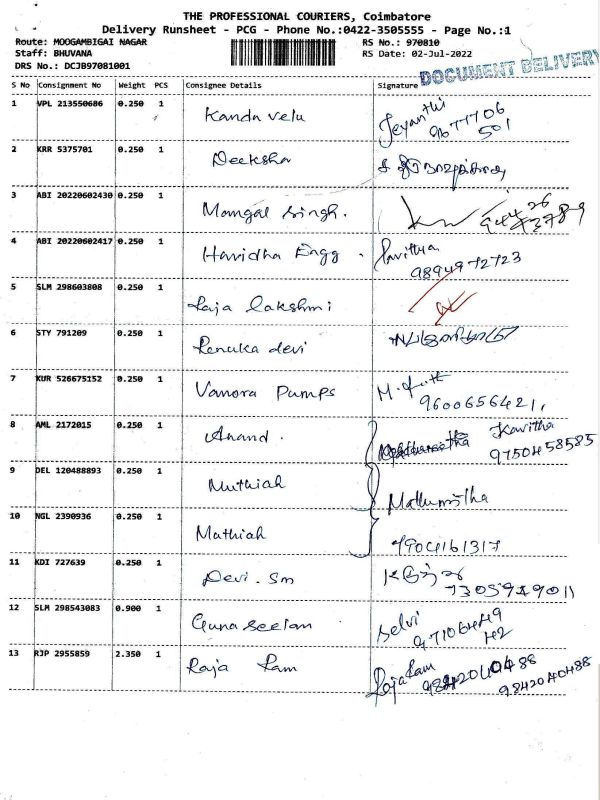 THE PROFESSIONAL COURIERS, Coimbatore
Delivery Runsheet - PCG - Phone No.:0422-3505555 - Page No.:1
Route: MOOGAMBIGAI NAGAR
RS No.: 970810
Staff: BHUVANA
RS Date: 02-Jul-2022
DRS No.: DCJB97081001
DOCUMENT DELIVERY
S No Consignment No Weight PCS Consignee Details Signature
1 VPL 213550686 0.250 1 Kanda velu Jeyanthi
9677706
501
2 KRR 5375701 0.250 1 Deeksha
3 ABI 20220602430 0.250 1 Mangal Singh.
4 ABI 20220602417 0.250 1 Haridha Engg. Pavithra
9894972723
5 SLM 298603808 0.250 1 Raja lakshmi
6 STY 791209 0.250 1 Renuka devi
7 KUR 526675152 0.250 1 Vanora Pumps
9600656421
8 AML 2172015 0.250 1 Anand. Kavitha
9750458585
9 DEL 120488893 0.250 1 Muthiah
Mathumitha
10 NGL 2390936 0.250 1 Muthiah
7904161317
11 KDI 727639 0.250 1 Devi. Sm
7305949011
12 SLM 298543083 0.900 1 Guna Seelan Selvi
97106449
42
13 RJP 2955859 2.350 1 Raja Ram Raja Ram
9842040488
9842040488